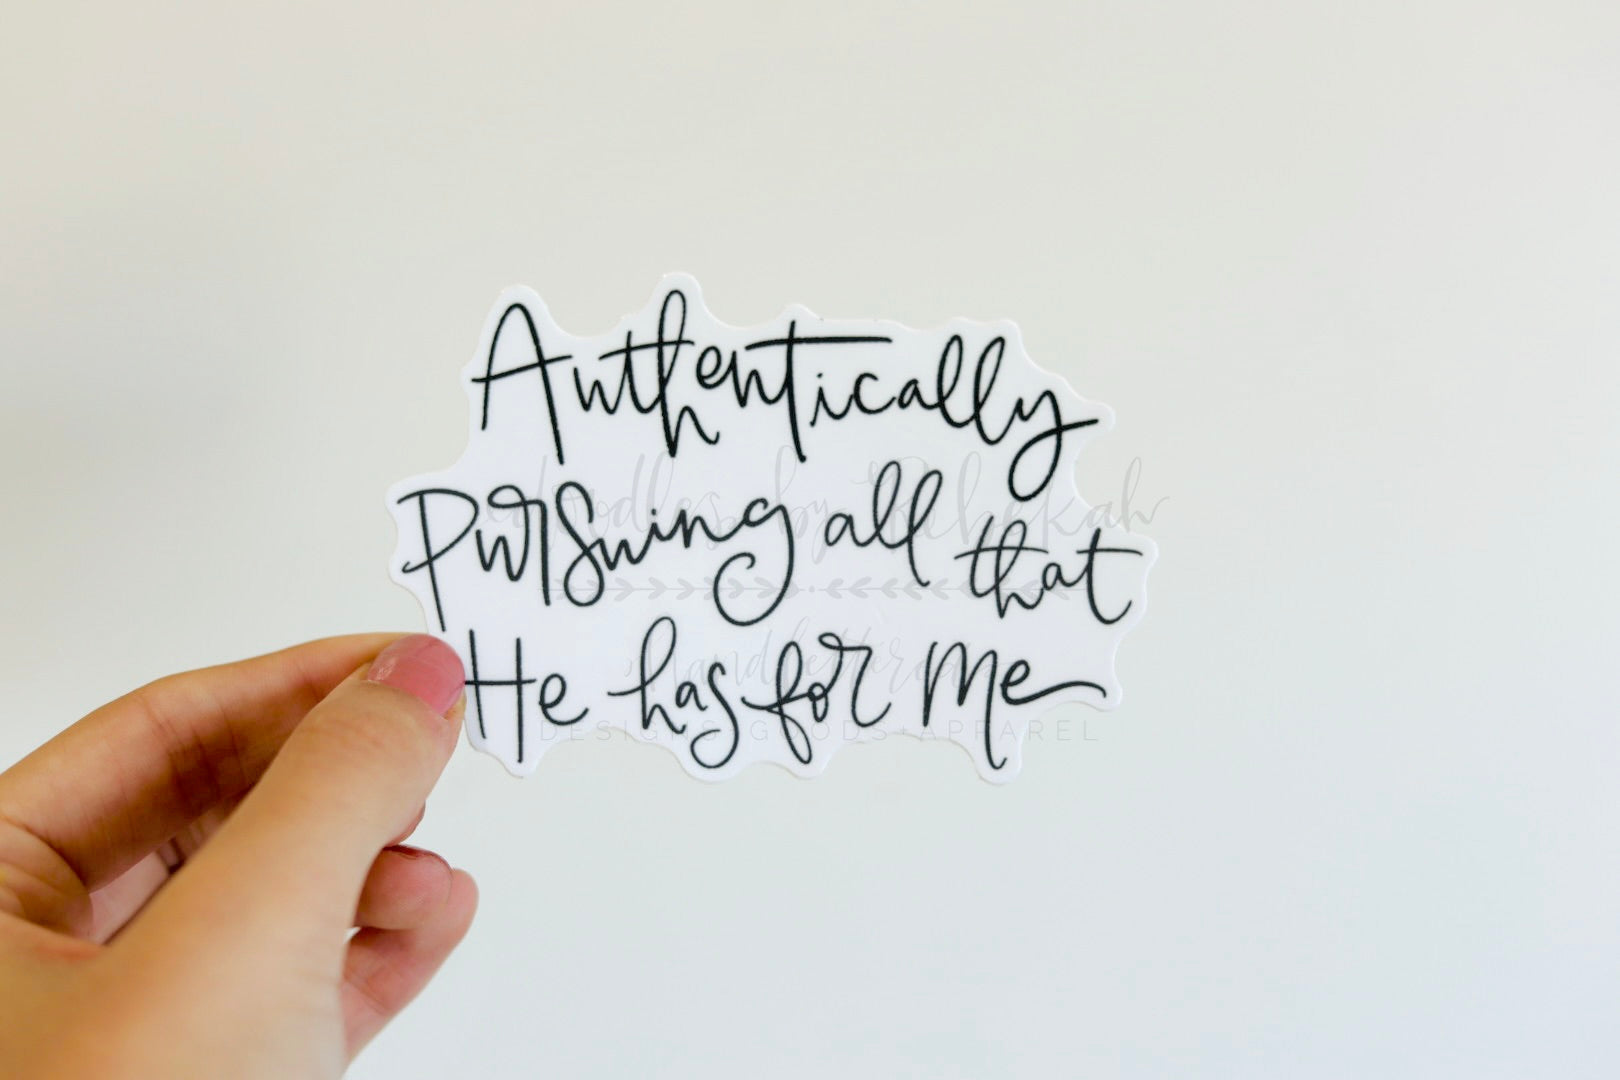 Authentically
pursuing all that
doodles by Rebekah
He has for me
Handlettered
DESIGNS GOODS + APPAREL